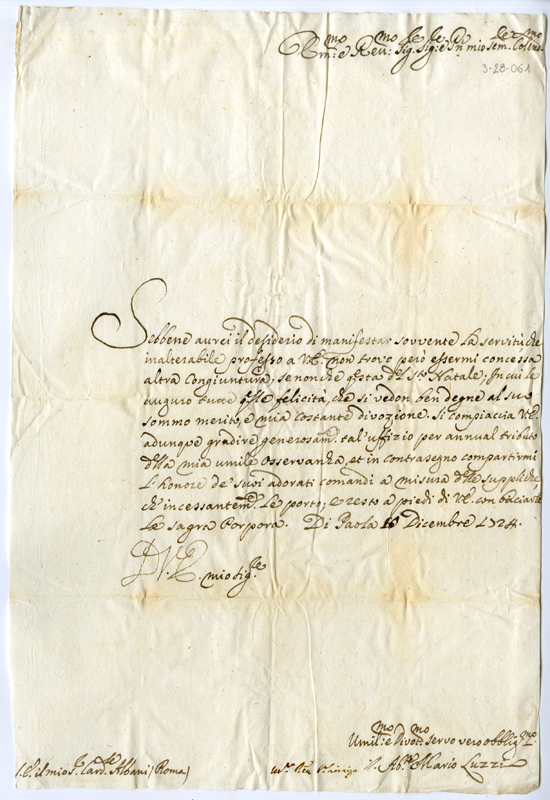 Em:mo e Reu:mo Sig.re Sig:re e Pn mio sem. Col:mo
3-28-061
Sebbene aurei il desiderio di manifestar sovvente la servitù, che
inalterabile professo a V.E. non trovo però essermi concessa
altra Congiuntura, se non che questa del S.to Natale; In cui le
auguro tutte q.lle felicità, che si vedon ben degne al suo
sommo merito, e mia costante divozione. Si compiaccia V.E.
adunque gradire generosam.te tal'uffizio per annual tributo
d.lla mia umile Osservanza, et in contrasegno compartirmi
l'honore de suoi adorati comandi a misura d.lle suppliche,
che incessantem.te Le porto, e resto a piedi di V.E. con baciarle
la sagra Porpora. Di Paola 16 Dicembre 1724.
D V.E. mio Sig.re
Umil:mo e Divot:mo servo vero obblig.mo
S.E. il mio S.r Card.le Albani (Roma)
Ab.te Mario Luzzi